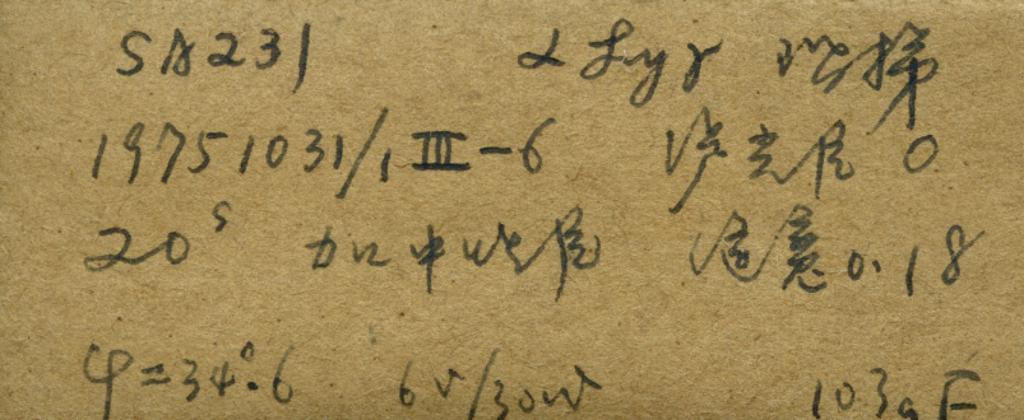 SA231 α Lyr 阶梯
19751031/1 III-6 滤光片 0
20ˢ 加中性片 适意0.18
φ=34°.6 6V/30W 103aF